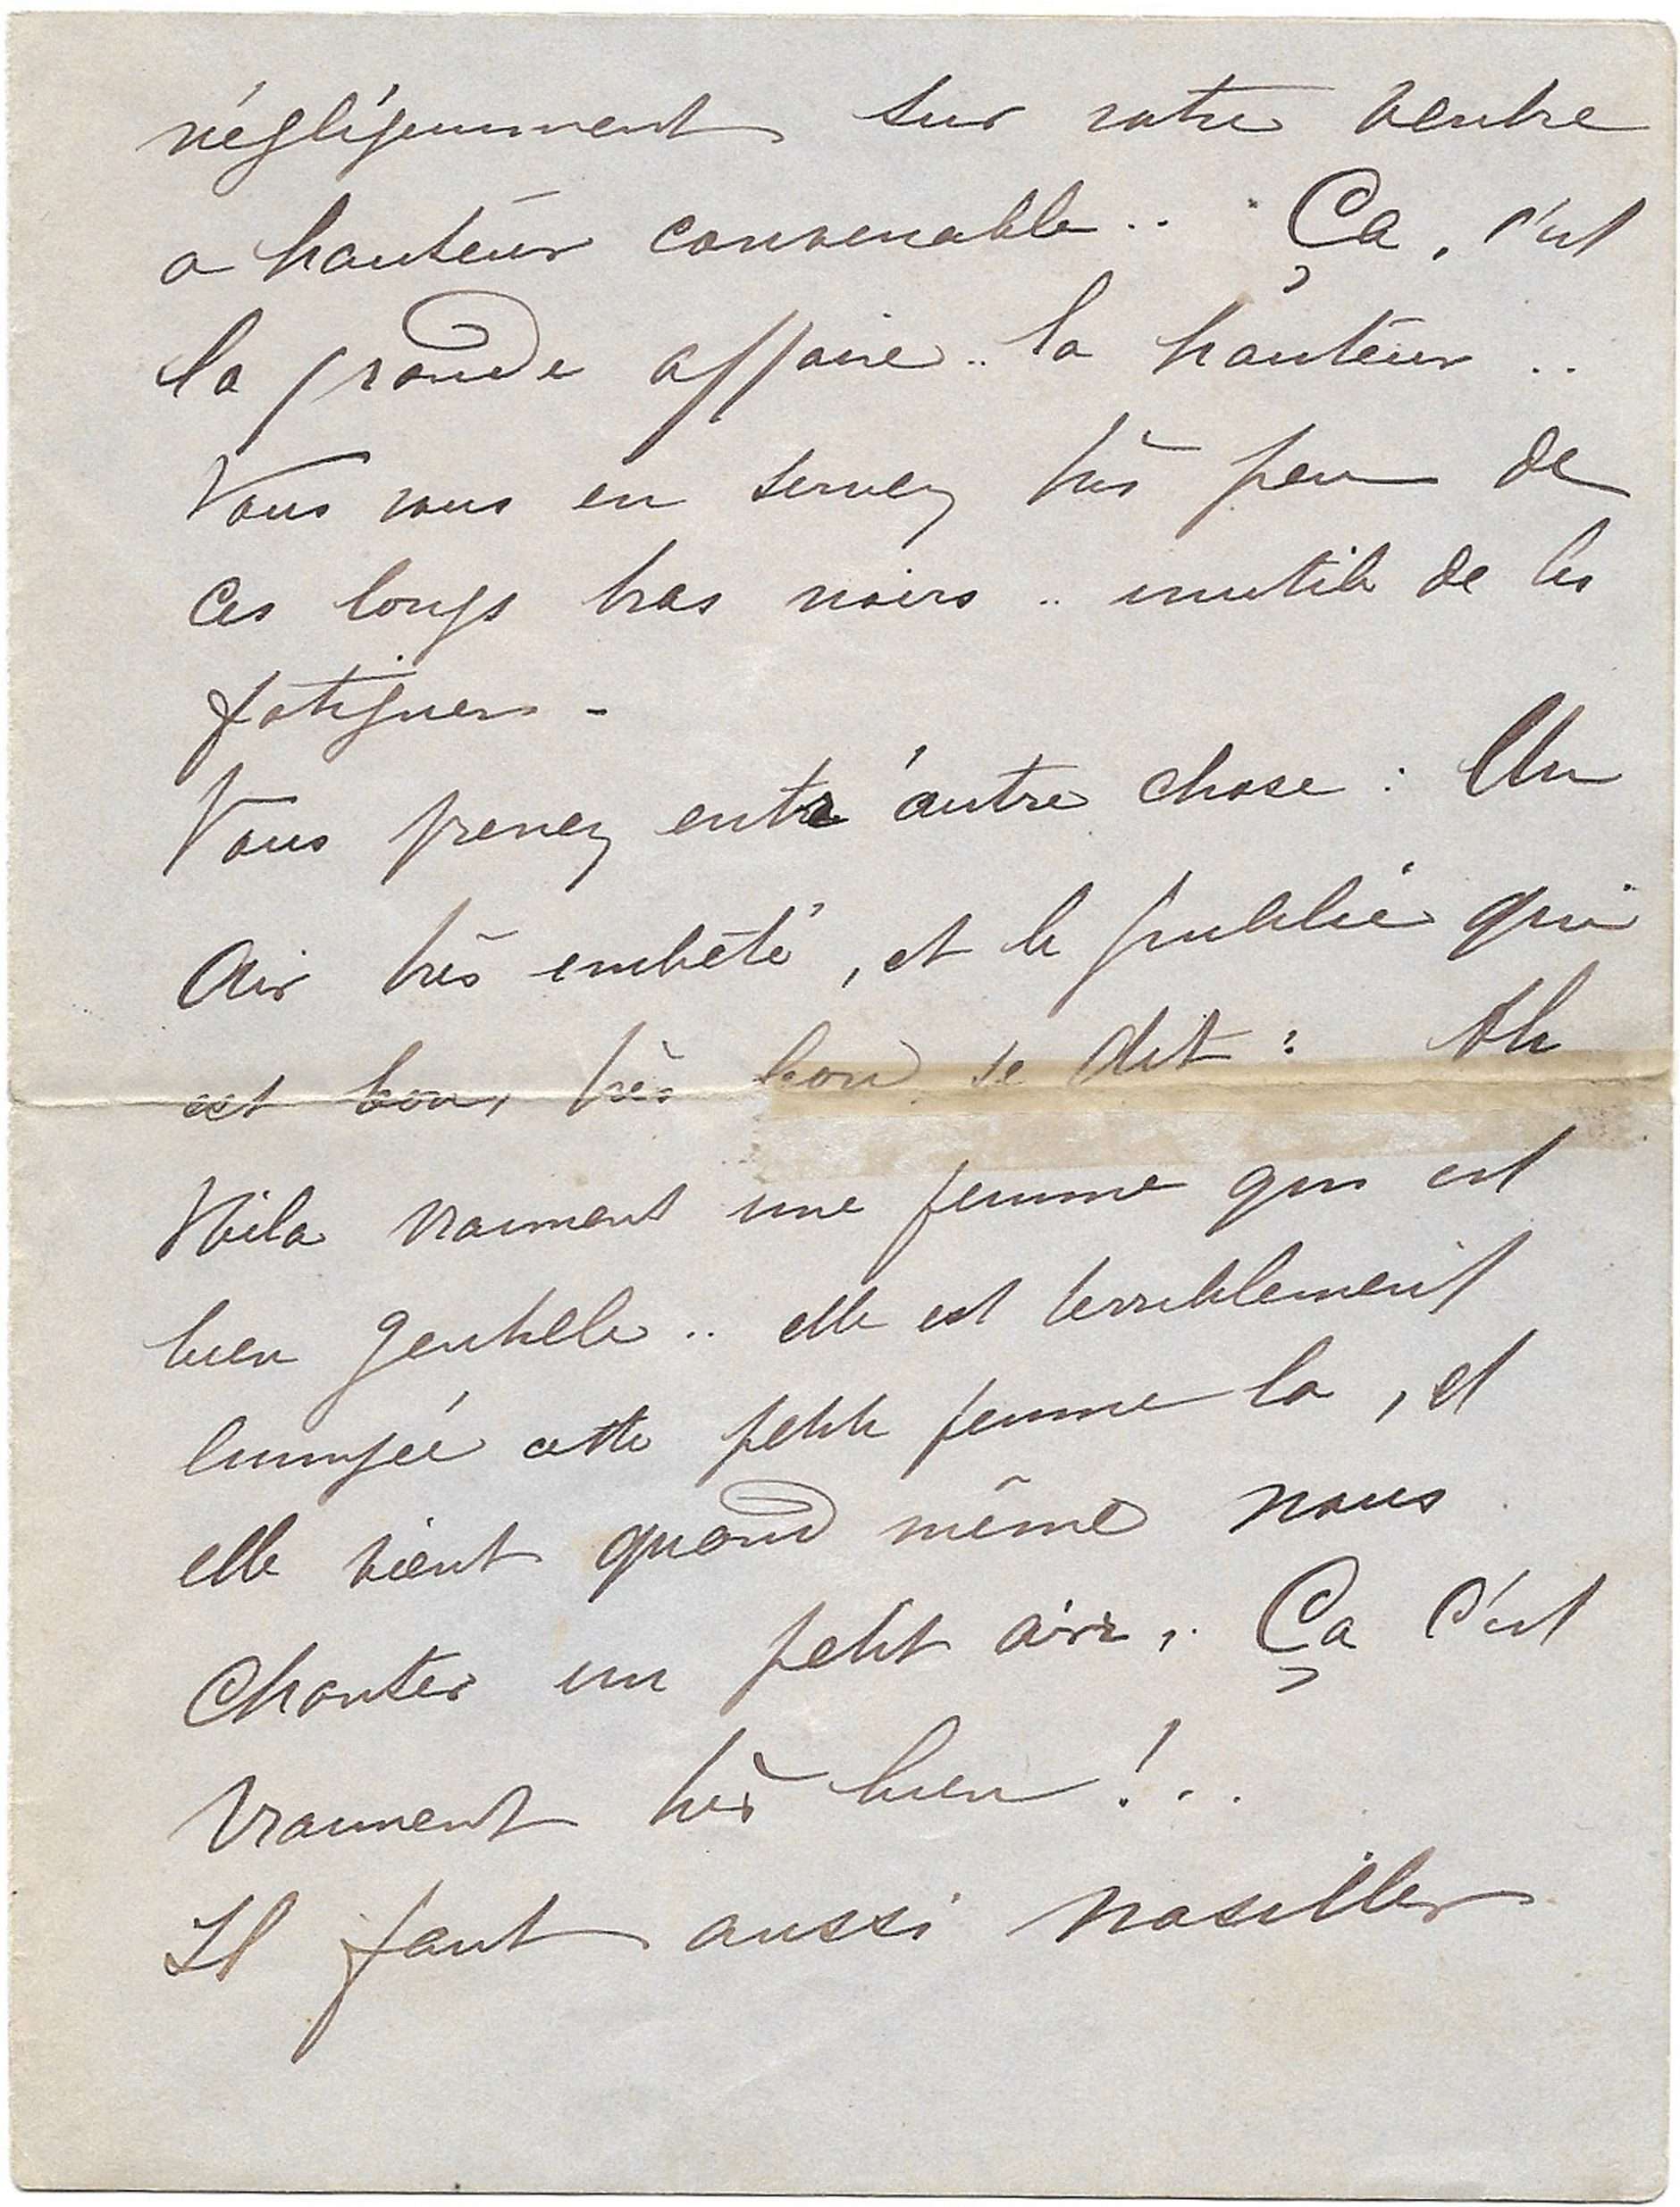 négligemment sur votre ventre
a hauteur convenable .. Ça, c'est
la grande affaire .. la hauteur ..
Vous vous en servez très peu de
ces longs bras noirs .. inutile de les
fatiguer -
Vous prenez entr'autre chose : Un
Air très embêté, et le public qui
est bon, très bon se dit : Ah
Voila vraiment une femme qui est
bien gentille .. elle est terriblement
cette petite femme la, et
elle vient quand même nous
Chanter un petit air .. Ça c'est
Vraiment très bien ! ..
Il faut aussi nasiller